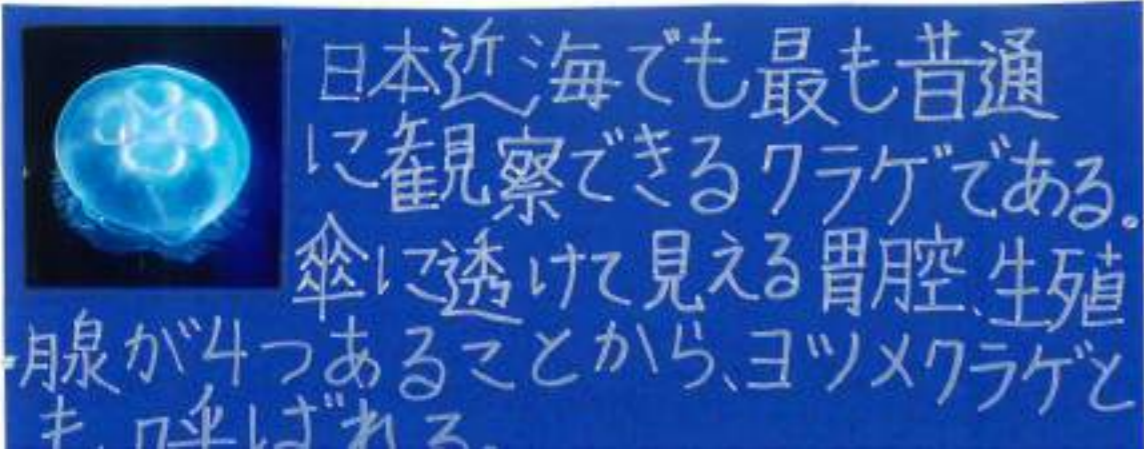 日本近海でも最も普通
に観察できるクラゲである。
傘に透けて見える胃腔、生殖
腺が4つあることから、ヨツメクラゲと
も呼ばれる。